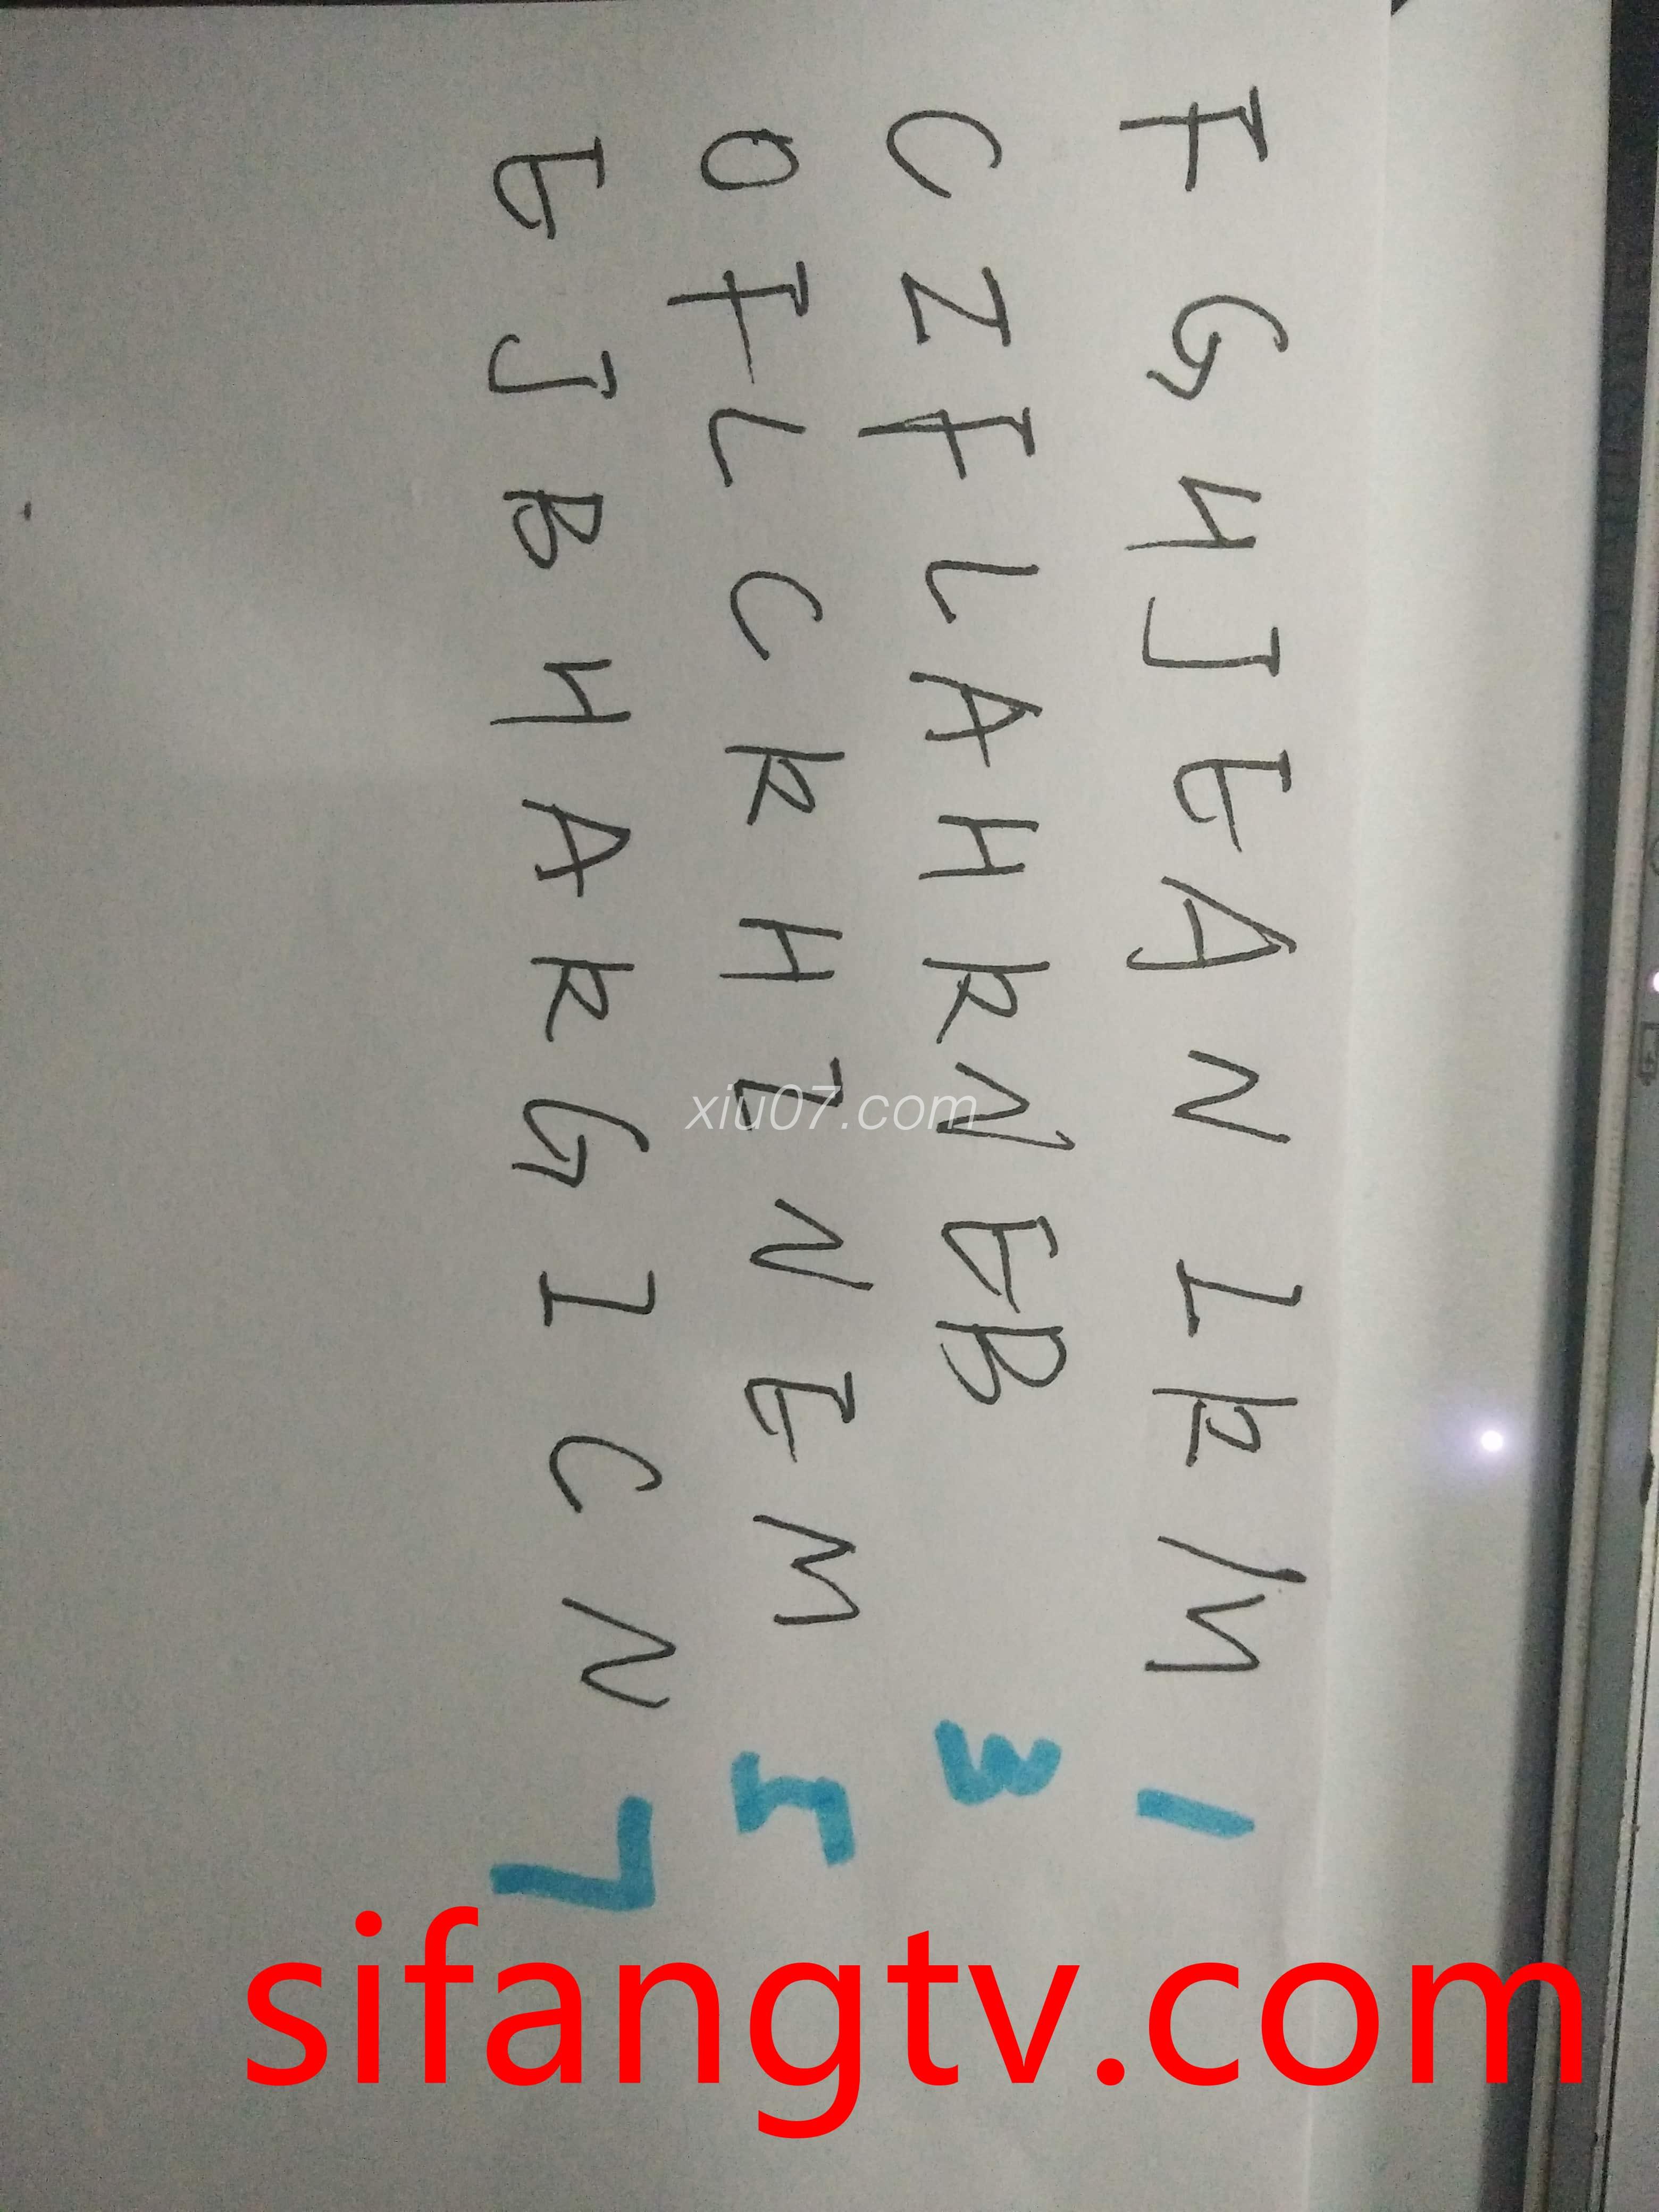 F G H J E A N I K M 1
C I F L A H K N E B 3
O F L C K H I N E M 5
E J B H A K G I C N 7
xiu07.com
sifangtv.com